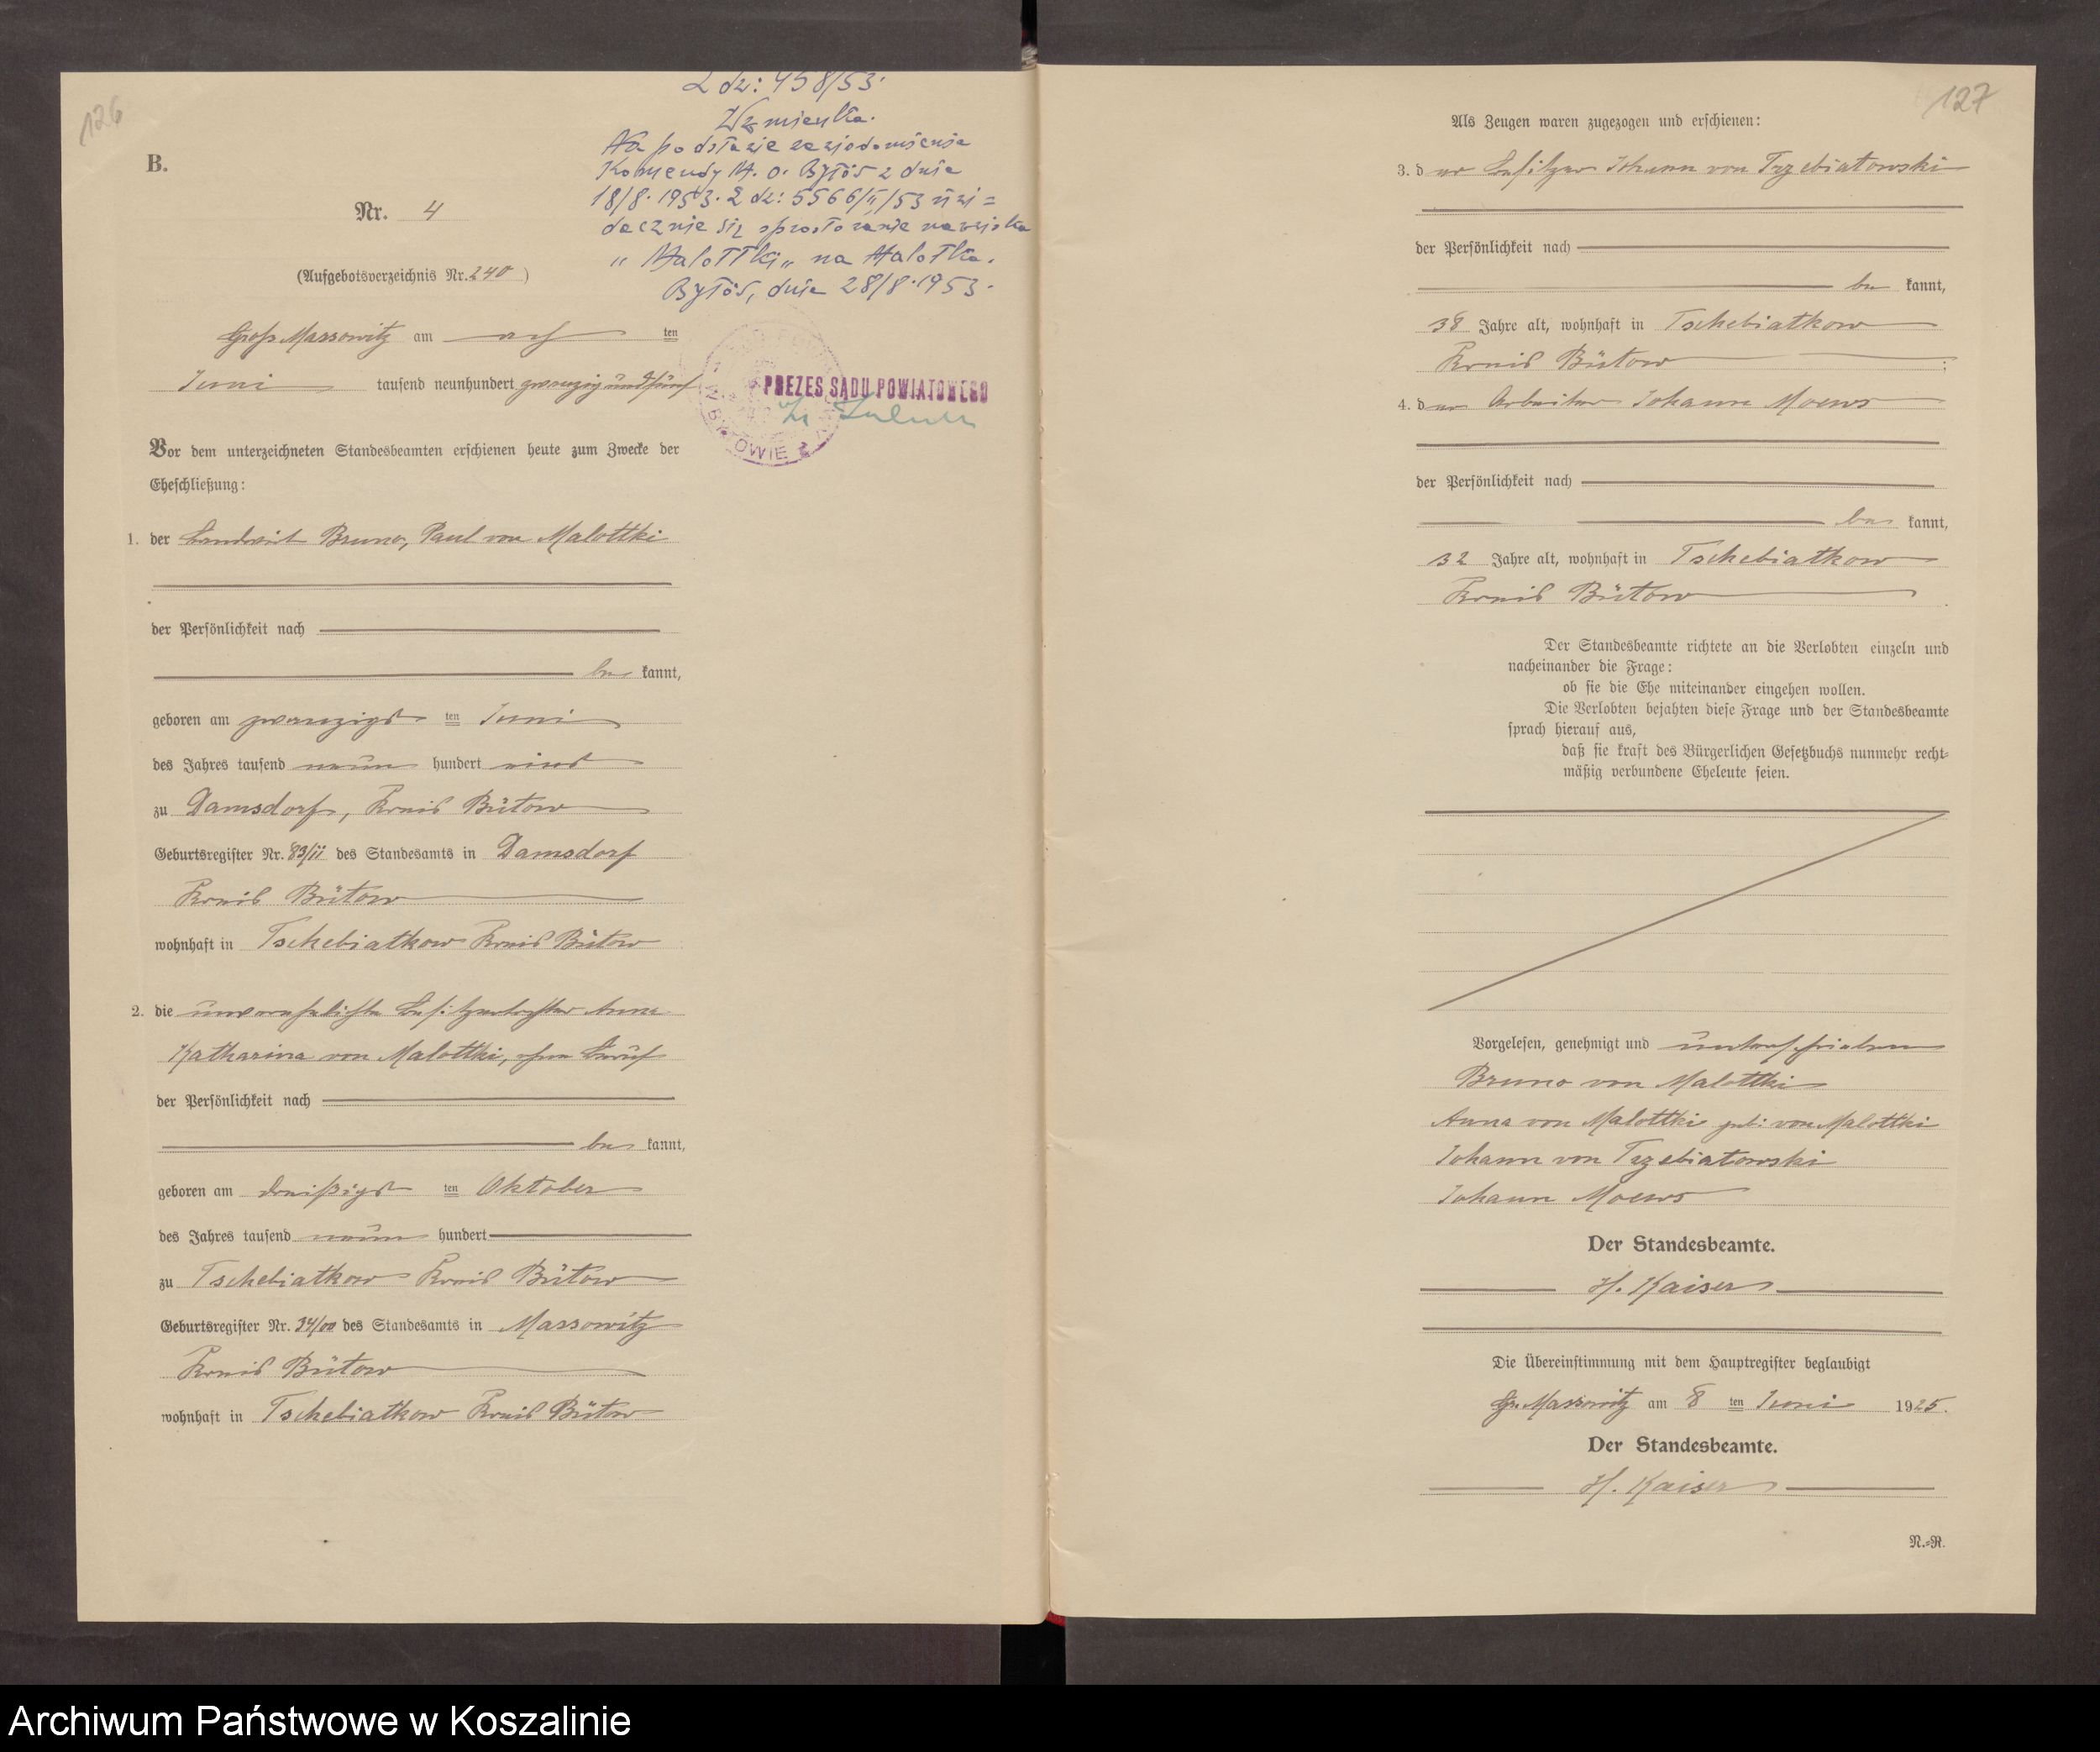 126
B.
L dz: 458/53.
Wzmianka.
Na podstawie zawiadomienia
Komendy M. O. Bytów z dnia
18/8. 1953. L dz: 5566/II/53 uwi=
dacznia się sprostowanie nazwiska
„Malottki„ na Malotka.
Bytów, dnia 28/8. 1953.
PREZES SĄDU POWIATOWEGO
W BYTOWIE
Nr. 4
(Aufgebotsverzeichnis Nr. 240)
Groß Massowitz am acht ten
Juni tausend neunhundert zwanzig und fünf
Vor dem unterzeichneten Standesbeamten erschienen heute zum Zwecke der
Eheschließung:
1. der Landwirt Bruno, Paul von Malottki
der Persönlichkeit nach
be kannt,
geboren am zwanzigst ten Juni
des Jahres tausend neun hundert eins
zu Damsdorf, Kreis Bütow
Geburtsregister Nr. 83/II des Standesamts in Damsdorf
Kreis Bütow
wohnhaft in Tschebiatkow Kreis Bütow
2. die unverehelichte Besitzertochter Anna
Katharina von Malottki, ohne Beruf
der Persönlichkeit nach
be kannt,
geboren am dreißigst ten Oktober
des Jahres tausend neun hundert
zu Tschebiatkow Kreis Bütow
Geburtsregister Nr. 34/00 des Standesamts in Massowitz
Kreis Bütow
wohnhaft in Tschebiatkow Kreis Bütow
127
Als Zeugen waren zugezogen und erschienen:
3. d er Besitzer Johann von Trzebiatowski
der Persönlichkeit nach
be kannt,
38 Jahre alt, wohnhaft in Tschebiatkow
Kreis Bütow ;
4. d er Arbeiter Johann Moews
der Persönlichkeit nach
be kannt,
32 Jahre alt, wohnhaft in Tschebiatkow
Kreis Bütow .
Der Standesbeamte richtete an die Verlobten einzeln und
nacheinander die Frage:
ob sie die Ehe miteinander eingehen wollen.
Die Verlobten bejahten diese Frage und der Standesbeamte
sprach hierauf aus,
daß sie kraft des Bürgerlichen Gesetzbuchs nunmehr recht=
mäßig verbundene Eheleute seien.
Vorgelesen, genehmigt und unterschrieben
Bruno von Malottki
Anna von Malottki geb: von Malottki
Johann von Trzebiatowski
Johann Moews
Der Standesbeamte.
H. Kaiser
Die Übereinstimmung mit dem Hauptregister beglaubigt
Gr. Massowitz am 8 ten Juni 1925.
Der Standesbeamte.
H. Kaiser
N.=R.
Archiwum Państwowe w Koszalinie